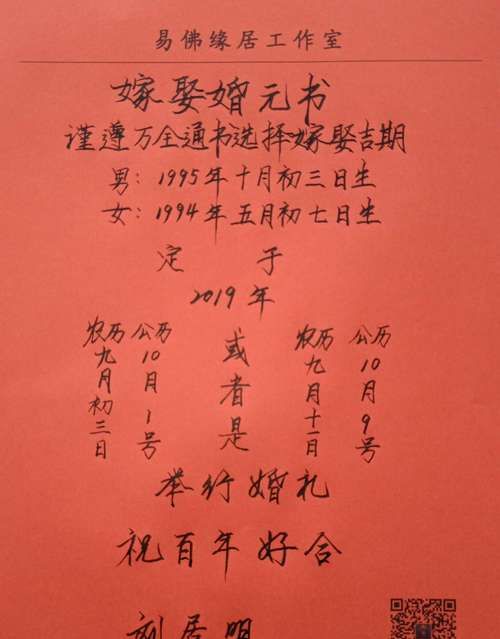 易佛缘居工作室
嫁娶婚元书
谨遵万全通书选择嫁娶吉期
男：1995年十月初三日生
女：1994年五月初七日生
定 于
2019年
农历九月初三日
公历10月1号
或者是
农历九月十一日
公历10月9号
举行婚礼
祝百年好合
刘居明